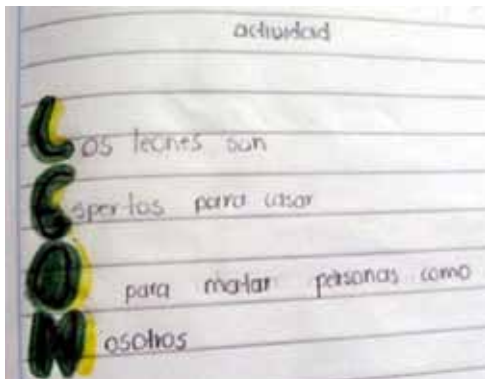 actividad
Los leones son
Espertos para casar
O para matar personas como
Nosotros